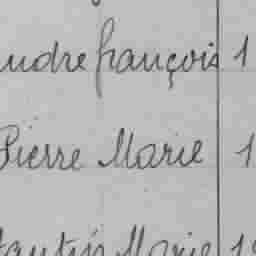 andre françois 1
Pierre Marie 1
Marie 19